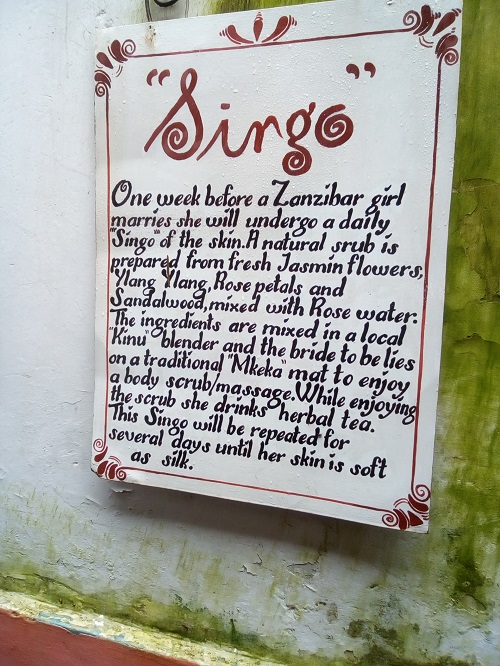 "Singo"
One week before a Zanzibar girl
marries she will undergo a daily
"Singo" of the skin. A natural srub is
prepared from fresh Jasmin flowers,
Ylang Ylang, Rose petals and
Sandalwood, mixed with Rose water.
The ingredients are mixed in a local
"Kinu" blender and the bride to be lies
on a traditional "Mkeka" mat to enjoy
a body scrub/massage. While enjoying
the scrub she drinks herbal tea.
This Singo will be repeated for
several days until her skin is soft
as silk.